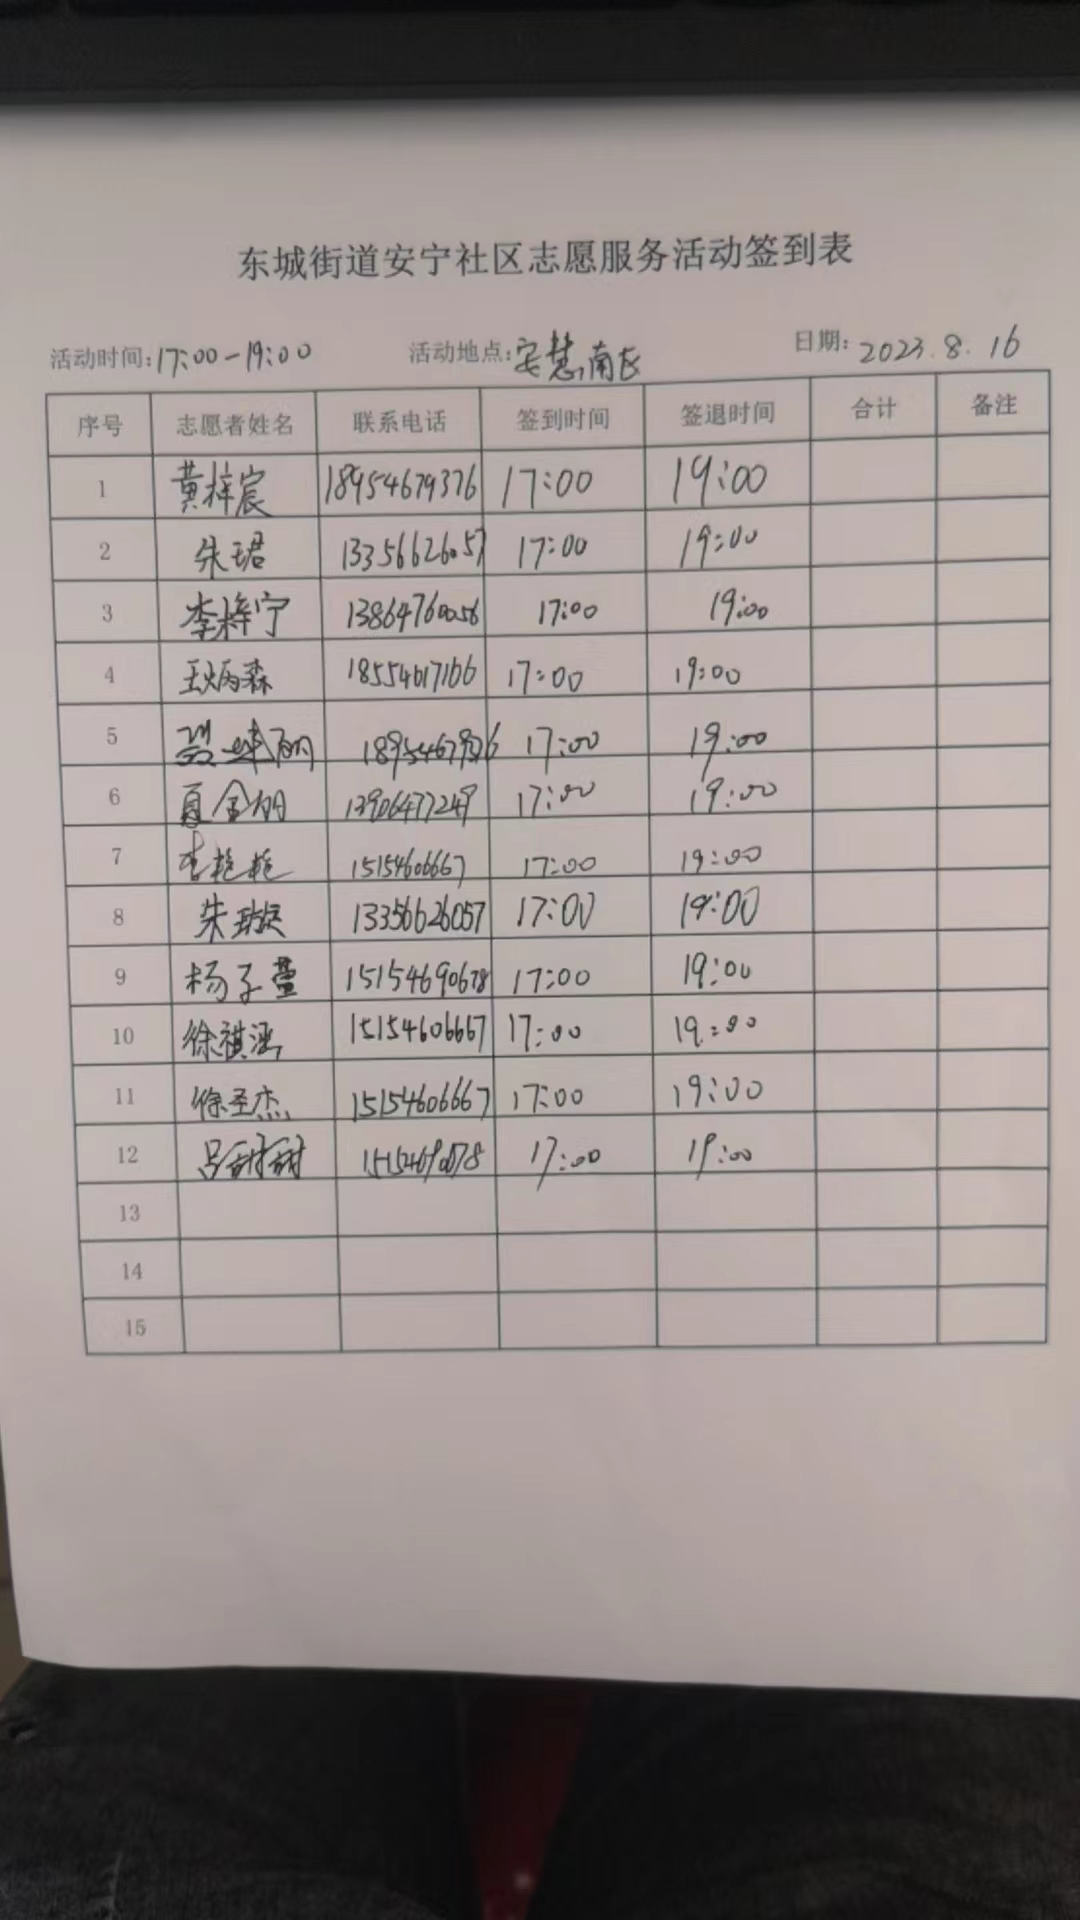 东城街道安宁社区志愿服务活动签到表
活动时间:17:00-19:00 活动地点:安慧南区 日期:2023.8.16
序号 志愿者姓名 联系电话 签到时间 签退时间 合计 备注
1 黄梓宸 18954679376 17:00 19:00
2 朱珺 13356626057 17:00 19:00
3 李梓宁 13864760056 17:00 19:00
4 王炳森 18554617166 17:00 19:00
5 17:00 19:00
6 夏金明 13906477249 17:00 19:00
7 李艳艳 15154606667 17:00 19:00
8 朱璇 13356626057 17:00 19:00
9 杨子萱 15154690678 17:00 19:00
10 徐祺涵 15154606667 17:00 19:00
11 徐圣杰 15154606667 17:00 19:00
12 吕甜甜 17:00 19:00
13
14
15